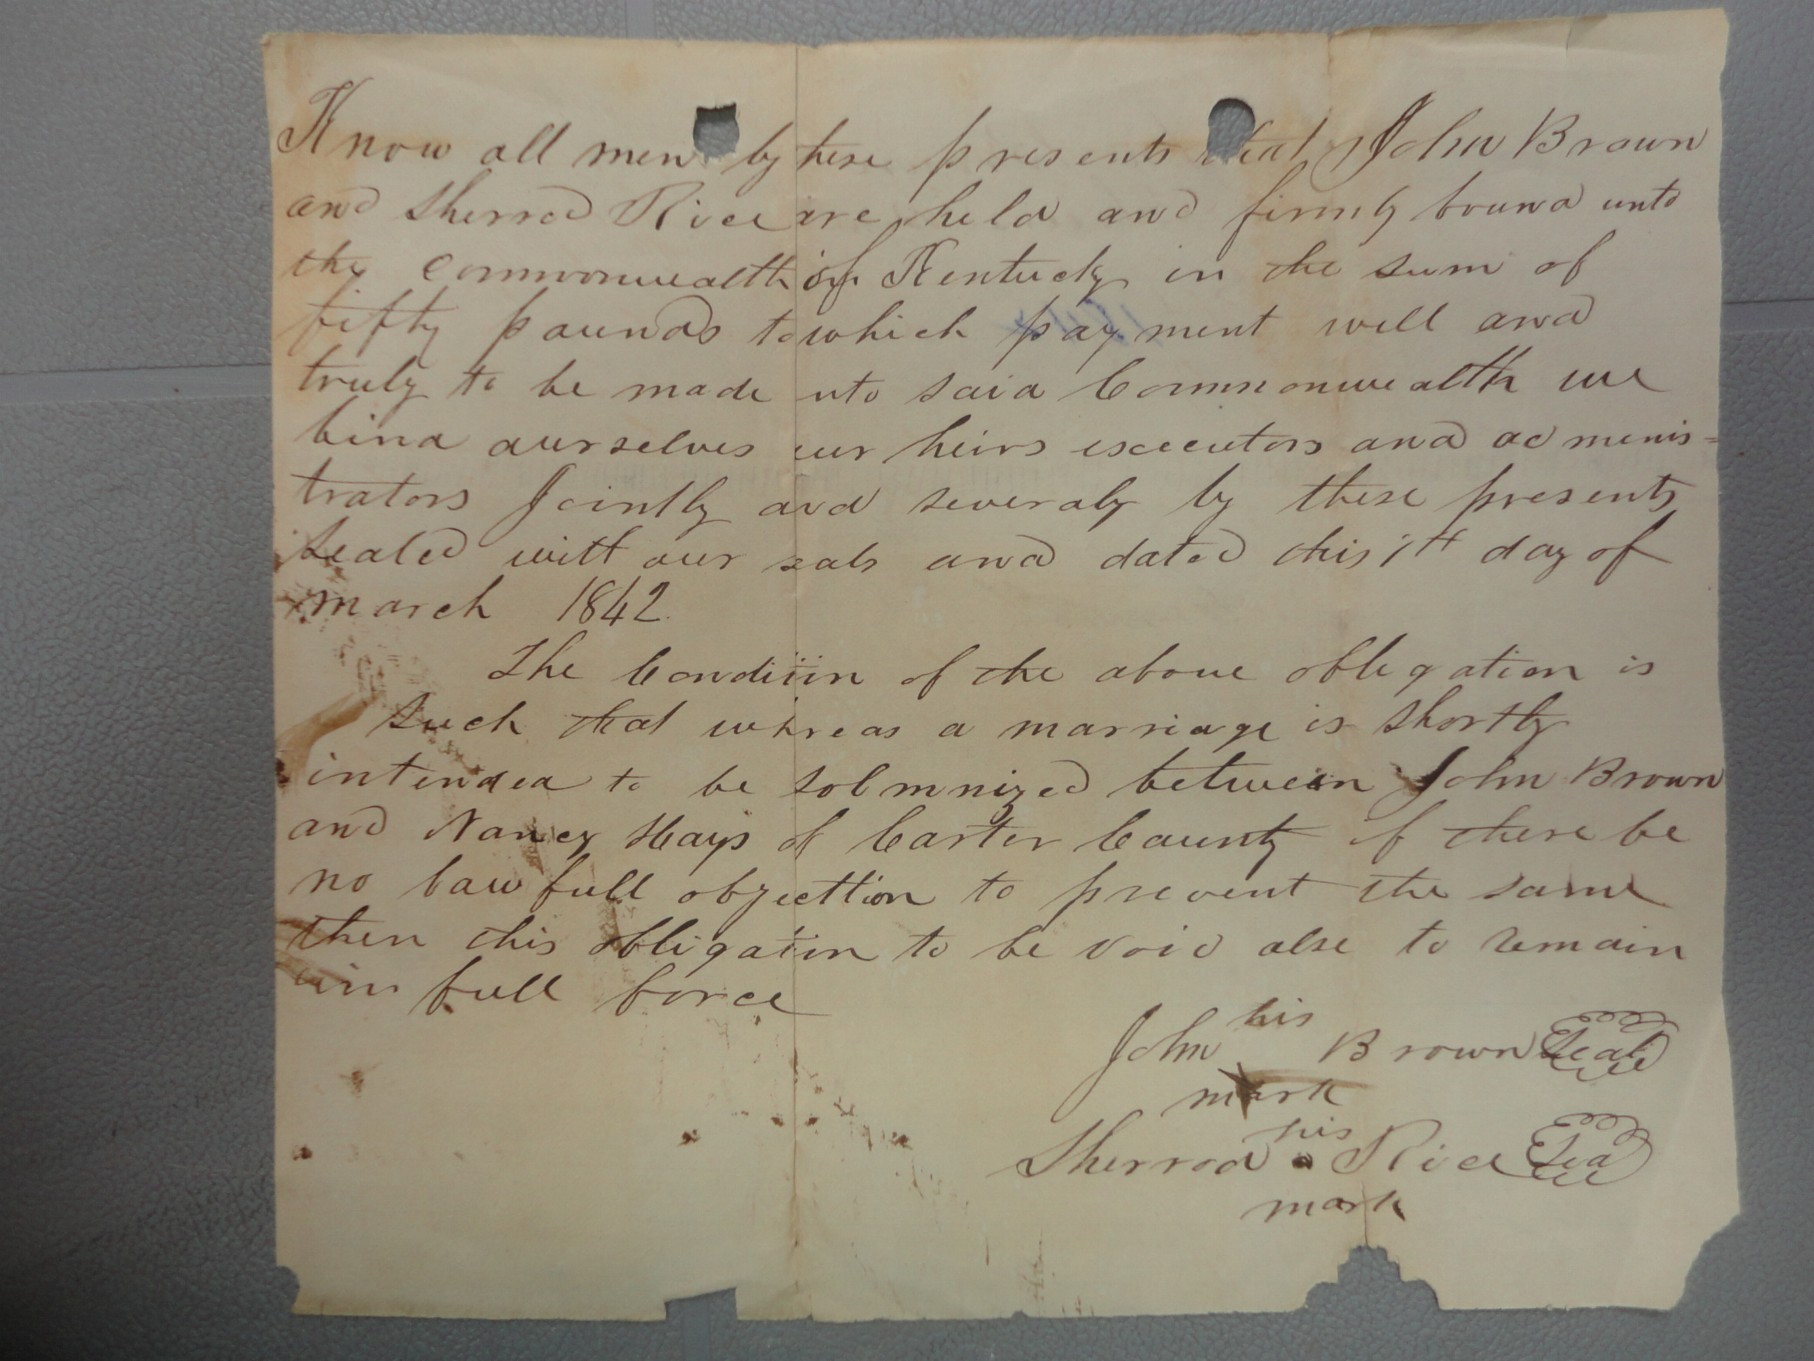 Know all men by these presents that John Brown
and Sherrod Rice are held and firmly bound unto
the commonwealth of Kentucky in the sum of
fifty pounds to which payment well and
truly to be made unto said Commonwealth we
bind aurselves our heirs executors and admenis=
trators Jointly and severaly by these presents
sealed with our seals and dated this 1th day of
march 1842
The Condition of the above obligation is
such that whereas a marriage is shortly
intended to be solmnized between John Brown
and Nancy Hays of Carter Caunty if there be
no lawfull objecttion to prevent the same
then this obligation to be void alse to remain
in full force
his
John Brown Seal
mark
his
Sherrod Rice Seal
mark